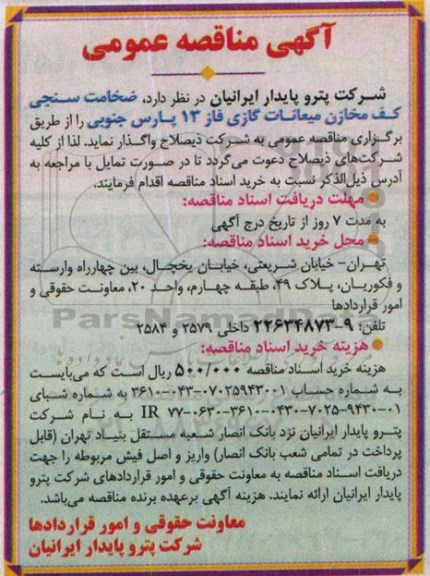 آگهی مناقصه عمومی
شرکت پترو پایدار ایرانیان در نظر دارد، ضخامت سنجی
کف مخازن میعانات گازی فاز ۱۳ پارس جنوبی را از طریق
برگزاری مناقصه عمومی به شرکت ذیصلاح واگذار نماید. لذا از کلیه
شرکت‌های ذیصلاح دعوت می‌گردد تا در صورت تمایل با مراجعه به
آدرس ذیل‌الذکر نسبت به خرید اسناد مناقصه اقدام فرمایند.
مهلت دریافت اسناد مناقصه:
به مدت ۷ روز از تاریخ درج آگهی
محل خرید اسناد مناقصه:
تهران- خیابان شریعتی، خیابان یخچال، بین چهارراه وارسته
و فکوریان، پلاک ۴۹، طبقه چهارم، واحد ۲۰، معاونت حقوقی و
امور قراردادها
تلفن: ۹-۲۲۶۳۴۸۷۳ داخلی ۲۵۷۹ و ۲۵۸۴
هزینه خرید اسناد مناقصه:
هزینه خرید اسناد مناقصه ۵۰۰/۰۰۰ ریال است که می‌بایست
به شماره حساب ۳۶۱۰-۰۴۳-۰۷۰۲۵۹۴۳۰۰۱ به شماره شبای
IR ۷۷-۰۶۳۰-۳۶۱۰-۰۴۳۰-۷۰۲۵-۹۴۳۰-۰۱ به نام شرکت
پترو پایدار ایرانیان نزد بانک انصار شعبه مستقل بنیاد تهران (قابل
پرداخت در تمامی شعب بانک انصار) واریز و اصل فیش مربوطه را جهت
دریافت اسناد مناقصه به معاونت حقوقی و امور قراردادهای شرکت پترو
پایدار ایرانیان ارائه نمایند. هزینه آگهی برعهده برنده مناقصه می‌باشد.
معاونت حقوقی و امور قراردادها
شرکت پترو پایدار ایرانیان
ParsNamadData